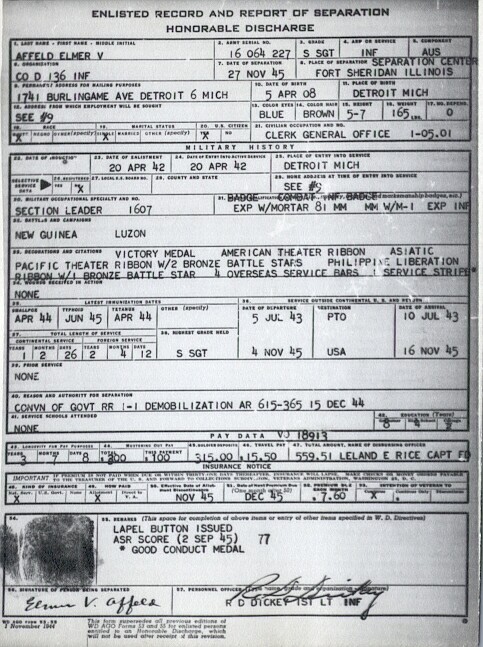 ENLISTED RECORD AND REPORT OF SEPARATION
HONORABLE DISCHARGE
1. LAST NAME - FIRST NAME - MIDDLE INITIAL
2. ARMY SERIAL NO.
3. GRADE
4. ARM OR SERVICE
5. COMPONENT
AFFELD ELMER V
16 064 227
S SGT
INF
AUS
6. ORGANIZATION
7. DATE OF SEPARATION
8. PLACE OF SEPARATION
SEPARATION CENTER
CO D 136 INF
27 NOV 45
FORT SHERIDAN ILLINOIS
9. PERMANENT ADDRESS FOR MAILING PURPOSES
10. DATE OF BIRTH
11. PLACE OF BIRTH
1741 BURLINGAME AVE DETROIT 6 MICH
5 APR 08
DETROIT MICH
12. ADDRESS FROM WHICH EMPLOYMENT WILL BE SOUGHT
13. COLOR EYES
14. COLOR HAIR
15. HEIGHT
16. WEIGHT
17. NO. DEPEND.
SEE #9
BLUE
BROWN
5-7
165 LBS.
0
18. RACE
19. MARITAL STATUS
20. U.S. CITIZEN
21. CIVILIAN OCCUPATION AND NO.
X
X
X
CLERK GENERAL OFFICE 1-05.01
MILITARY HISTORY
22. DATE OF INDUCTION
23. DATE OF ENLISTMENT
24. DATE OF ENTRY INTO ACTIVE SERVICE
25. PLACE OF ENTRY INTO SERVICE
20 APR 42
20 APR 42
DETROIT MICH
SELECTIVE SERVICE DATA
26. REGISTERED
27. LOCAL S.S. BOARD NO.
28. COUNTY AND STATE
29. HOME ADDRESS AT TIME OF ENTRY INTO SERVICE
YES
X
SEE #9
30. MILITARY OCCUPATIONAL SPECIALTY AND NO.
BADGE COMBAT INF BADGE
SECTION LEADER 1607
EXP W/MORTAR 81 MM MM W/M-1 EXP INF
32. BATTLES AND CAMPAIGNS
NEW GUINEA LUZON
33. DECORATIONS AND CITATIONS
VICTORY MEDAL AMERICAN THEATER RIBBON ASIATIC
PACIFIC THEATER RIBBON W/2 BRONZE BATTLE STARS PHILIPPINE LIBERATION
RIBBON W/1 BRONZE BATTLE STAR 4 OVERSEAS SERVICE BARS 1 SERVICE STRIPE*
34. WOUNDS RECEIVED IN ACTION
NONE
35. LATEST IMMUNIZATION DATES
36. SERVICE OUTSIDE CONTINENTAL U.S. AND RETURN
SMALLPOX
TYPHOID
TETANUS
OTHER (specify)
DATE OF DEPARTURE
DESTINATION
DATE OF ARRIVAL
APR 44
JUN 45
APR 44
5 JUL 43
PTO
10 JUL 43
37. TOTAL LENGTH OF SERVICE
38. HIGHEST GRADE HELD
CONTINENTAL SERVICE
FOREIGN SERVICE
YEARS
MONTHS
DAYS
YEARS
MONTHS
DAYS
1
2
26
2
4
12
S SGT
4 NOV 45
USA
16 NOV 45
39. PRIOR SERVICE
NONE
40. REASON AND AUTHORITY FOR SEPARATION
CONVN OF GOVT RR 1-1 DEMOBILIZATION AR 615-365 15 DEC 44
41. SERVICE SCHOOLS ATTENDED
42. EDUCATION (Years)
NONE
8
4
PAY DATA VJ 18913
43. LONGEVITY FOR PAY PURPOSES
44. MUSTERING OUT PAY
45. SOLDIER DEPOSITS
46. TRAVEL PAY
47. TOTAL AMOUNT, NAME OF DISBURSING OFFICER
YEARS
MONTHS
DAYS
TOTAL
THIS PAYMENT
3
7
8
$300
$100
315.00
$15.50
559.51 LELAND E RICE CAPT FD
INSURANCE NOTICE
IMPORTANT
IF PREMIUM IS NOT PAID WHEN DUE OR WITHIN THIRTY-ONE DAYS THEREAFTER, INSURANCE WILL LAPSE. MAKE CHECKS OR MONEY ORDERS PAYABLE
TO THE TREASURER OF THE U.S. AND FORWARD TO COLLECTIONS SUBDIVISION, VETERANS ADMINISTRATION, WASHINGTON 25, D.C.
48. KIND OF INSURANCE
49. HOW PAID
X
X
NOV 45
DEC 45
$ 7.60
X
55. REMARKS (This space for completion of above items or entry of other items specified in W. D. Directives)
LAPEL BUTTON ISSUED
ASR SCORE (2 SEP 45) 77
* GOOD CONDUCT MEDAL
56. SIGNATURE OF PERSON BEING SEPARATED
57. PERSONNEL OFFICER (Type name, grade and organization - signature)
Elmer V. Affeld
WD AGO FORM 53-55
1 November 1944
This form supersedes all previous editions of
WD AGO Forms 53 and 55 for enlisted persons
entitled to an Honorable Discharge, which
will not be used after receipt of this revision.